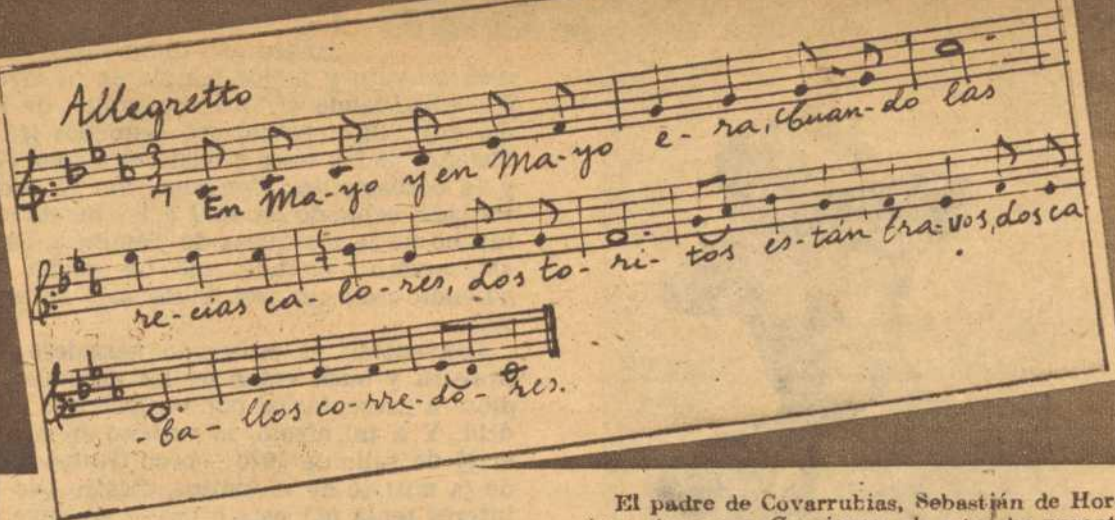 Allegretto
3/4
En Ma-yo y en Ma-yo e-ra, Cuan-do las
re-cias ca-lo-res, dos to-ri-tos es-tán bra-vos, dos ca-
ba-llos co-rre-do-res.
El padre de Covarrubias, Sebastián de Hor